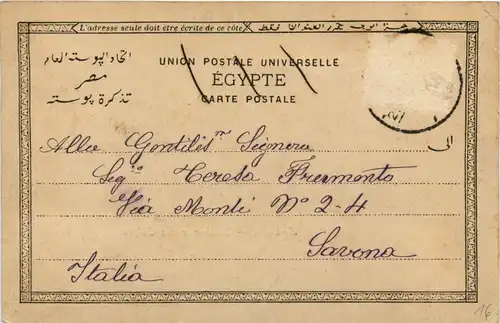 L'adresse seule doit être écrite de ce côté
UNION POSTALE UNIVERSELLE
اتحاد البوستة العام
ÉGYPTE
مصر
CARTE POSTALE
تذكرة بوسته
الى
Alla Gentilis.ma Signora
Sig.a Teresa Frumento
Via Monti Nº 2-4
Savona
Italia
16